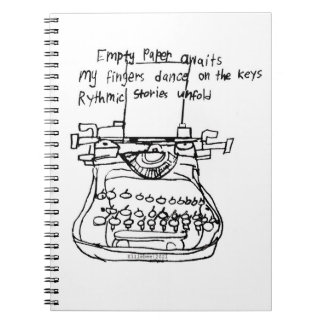 Empty Paper awaits
My fingers dance on the keys
Rythmic Stories unfold